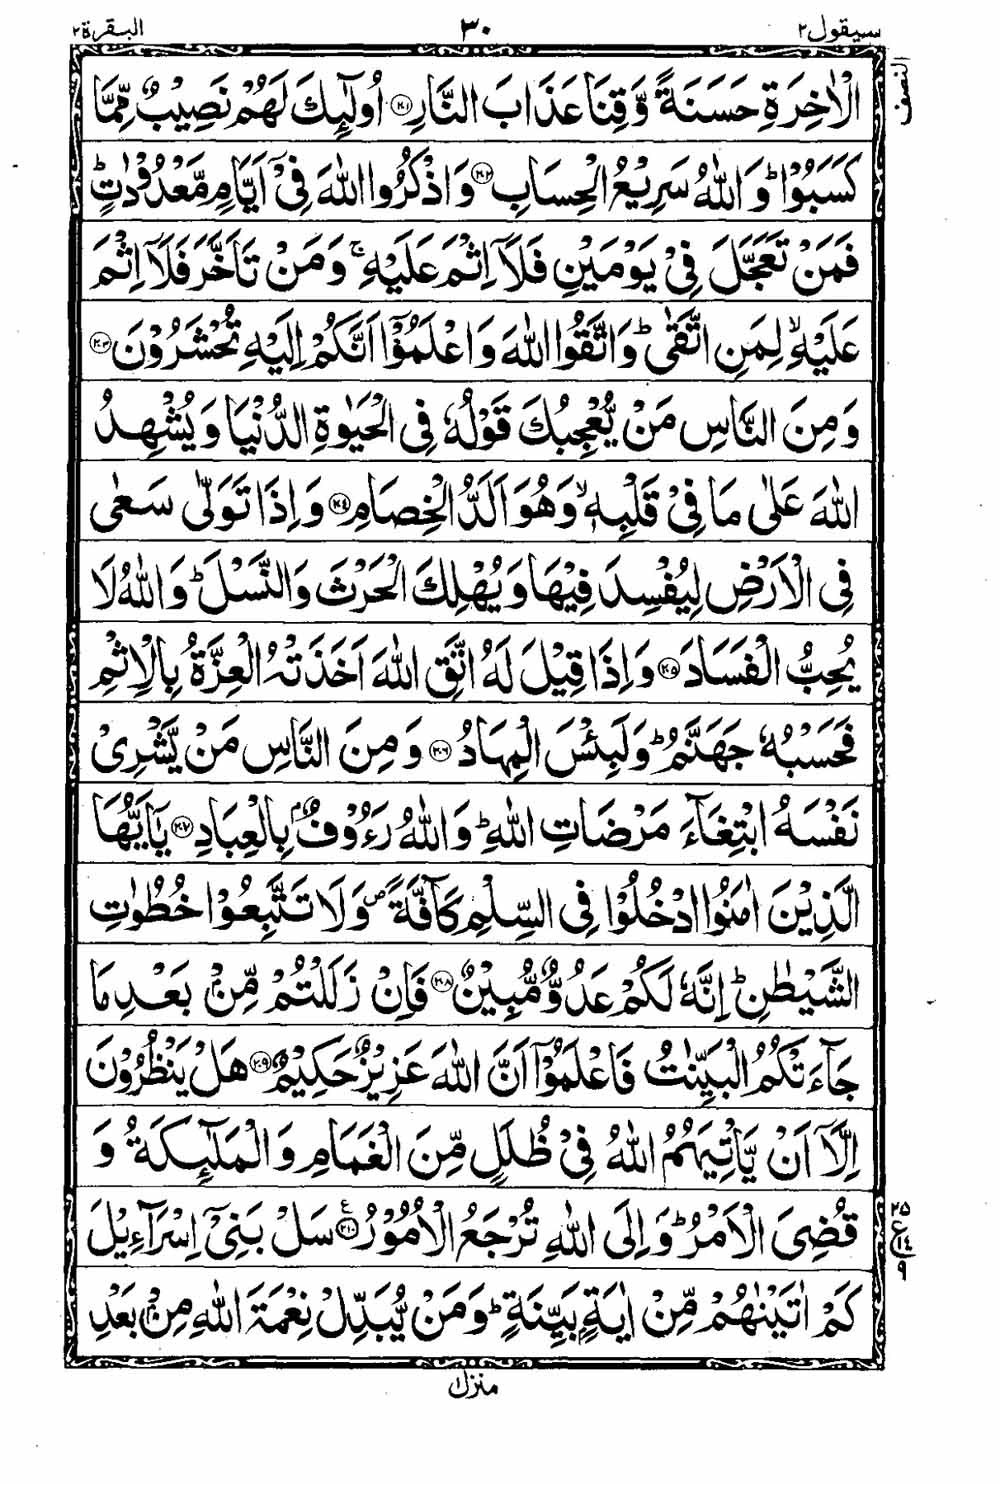 سيقول ٢ ٣٠ البقرة ٢
النصف
الْاٰخِرَةِ حَسَنَةً وَّقِنَا عَذَابَ النَّارِ ﴿۲۰۱﴾ اُولٰٓئِكَ لَهُمْ نَصِيْبٌ مِّمَّا
كَسَبُوْا ؕ وَاللّٰهُ سَرِيْعُ الْحِسَابِ ﴿۲۰۲﴾ وَاذْكُرُوا اللّٰهَ فِىْٓ اَيَّامٍ مَّعْدُوْدٰتٍ ؕ
فَمَنْ تَعَجَّلَ فِىْ يَوْمَيْنِ فَلَآ اِثْمَ عَلَيْهِ ۚ وَمَنْ تَاَخَّرَ فَلَآ اِثْمَ
عَلَيْهِ ۙ لِمَنِ اتَّقٰى ؕ وَاتَّقُوا اللّٰهَ وَاعْلَمُوْٓا اَنَّكُمْ اِلَيْهِ تُحْشَرُوْنَ ﴿۲۰۳﴾
وَمِنَ النَّاسِ مَنْ يُّعْجِبُكَ قَوْلُهٗ فِى الْحَيٰوةِ الدُّنْيَا وَيُشْهِدُ
اللّٰهَ عَلٰى مَا فِىْ قَلْبِهٖ ۙ وَهُوَ اَلَدُّ الْخِصَامِ ﴿۲۰۴﴾ وَاِذَا تَوَلّٰى سَعٰى
فِى الْاَرْضِ لِيُفْسِدَ فِيْهَا وَيُهْلِكَ الْحَرْثَ وَالنَّسْلَ ؕ وَاللّٰهُ لَا
يُحِبُّ الْفَسَادَ ﴿۲۰۵﴾ وَاِذَا قِيْلَ لَهُ اتَّقِ اللّٰهَ اَخَذَتْهُ الْعِزَّةُ بِالْاِثْمِ
فَحَسْبُهٗ جَهَنَّمُ ؕ وَلَبِئْسَ الْمِهَادُ ﴿۲۰۶﴾ وَمِنَ النَّاسِ مَنْ يَّشْرِىْ
نَفْسَهُ ابْتِغَآءَ مَرْضَاتِ اللّٰهِ ؕ وَاللّٰهُ رَءُوْفٌۢ بِالْعِبَادِ ﴿۲۰۷﴾ يٰٓاَيُّهَا
الَّذِيْنَ اٰمَنُوا ادْخُلُوْا فِى السِّلْمِ كَآفَّةً ۪ وَلَا تَتَّبِعُوْا خُطُوٰتِ
الشَّيْطٰنِ ؕ اِنَّهٗ لَكُمْ عَدُوٌّ مُّبِيْنٌ ﴿۲۰۸﴾ فَاِنْ زَلَلْتُمْ مِّنْۢ بَعْدِ مَا
جَآءَتْكُمُ الْبَيِّنٰتُ فَاعْلَمُوْٓا اَنَّ اللّٰهَ عَزِيْزٌ حَكِيْمٌ ﴿۲۰۹﴾ هَلْ يَنْظُرُوْنَ
اِلَّآ اَنْ يَّاْتِيَهُمُ اللّٰهُ فِىْ ظُلَلٍ مِّنَ الْغَمَامِ وَالْمَلٰٓئِكَةُ وَ
قُضِىَ الْاَمْرُ ؕ وَاِلَى اللّٰهِ تُرْجَعُ الْاُمُوْرُ ﴿۲۱۰﴾ ع سَلْ بَنِىْٓ اِسْرَآءِيْلَ
٢٥ ع ١٤ ٩
كَمْ اٰتَيْنٰهُمْ مِّنْ اٰيَةٍۭ بَيِّنَةٍ ؕ وَمَنْ يُّبَدِّلْ نِعْمَةَ اللّٰهِ مِنْۢ بَعْدِ
منزل ١